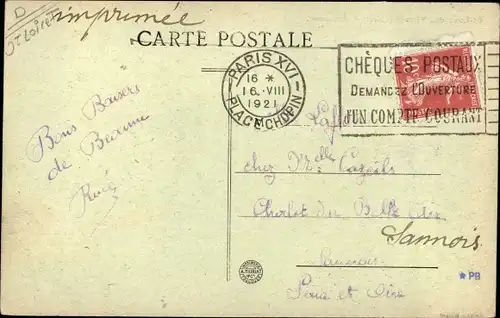 D
imprimée
CARTE POSTALE
PARIS XVI
16 *
16 · VIII
1921
PLACE CHOPIN
CHÈQUES POSTAUX
DEMANDEZ L'OUVERTURE
D'UN COMPTE COURANT
Bons Baisers
de Beaune
chez Melles
Chalet du Bel Air
Sannois
Seine et Oise
*PB